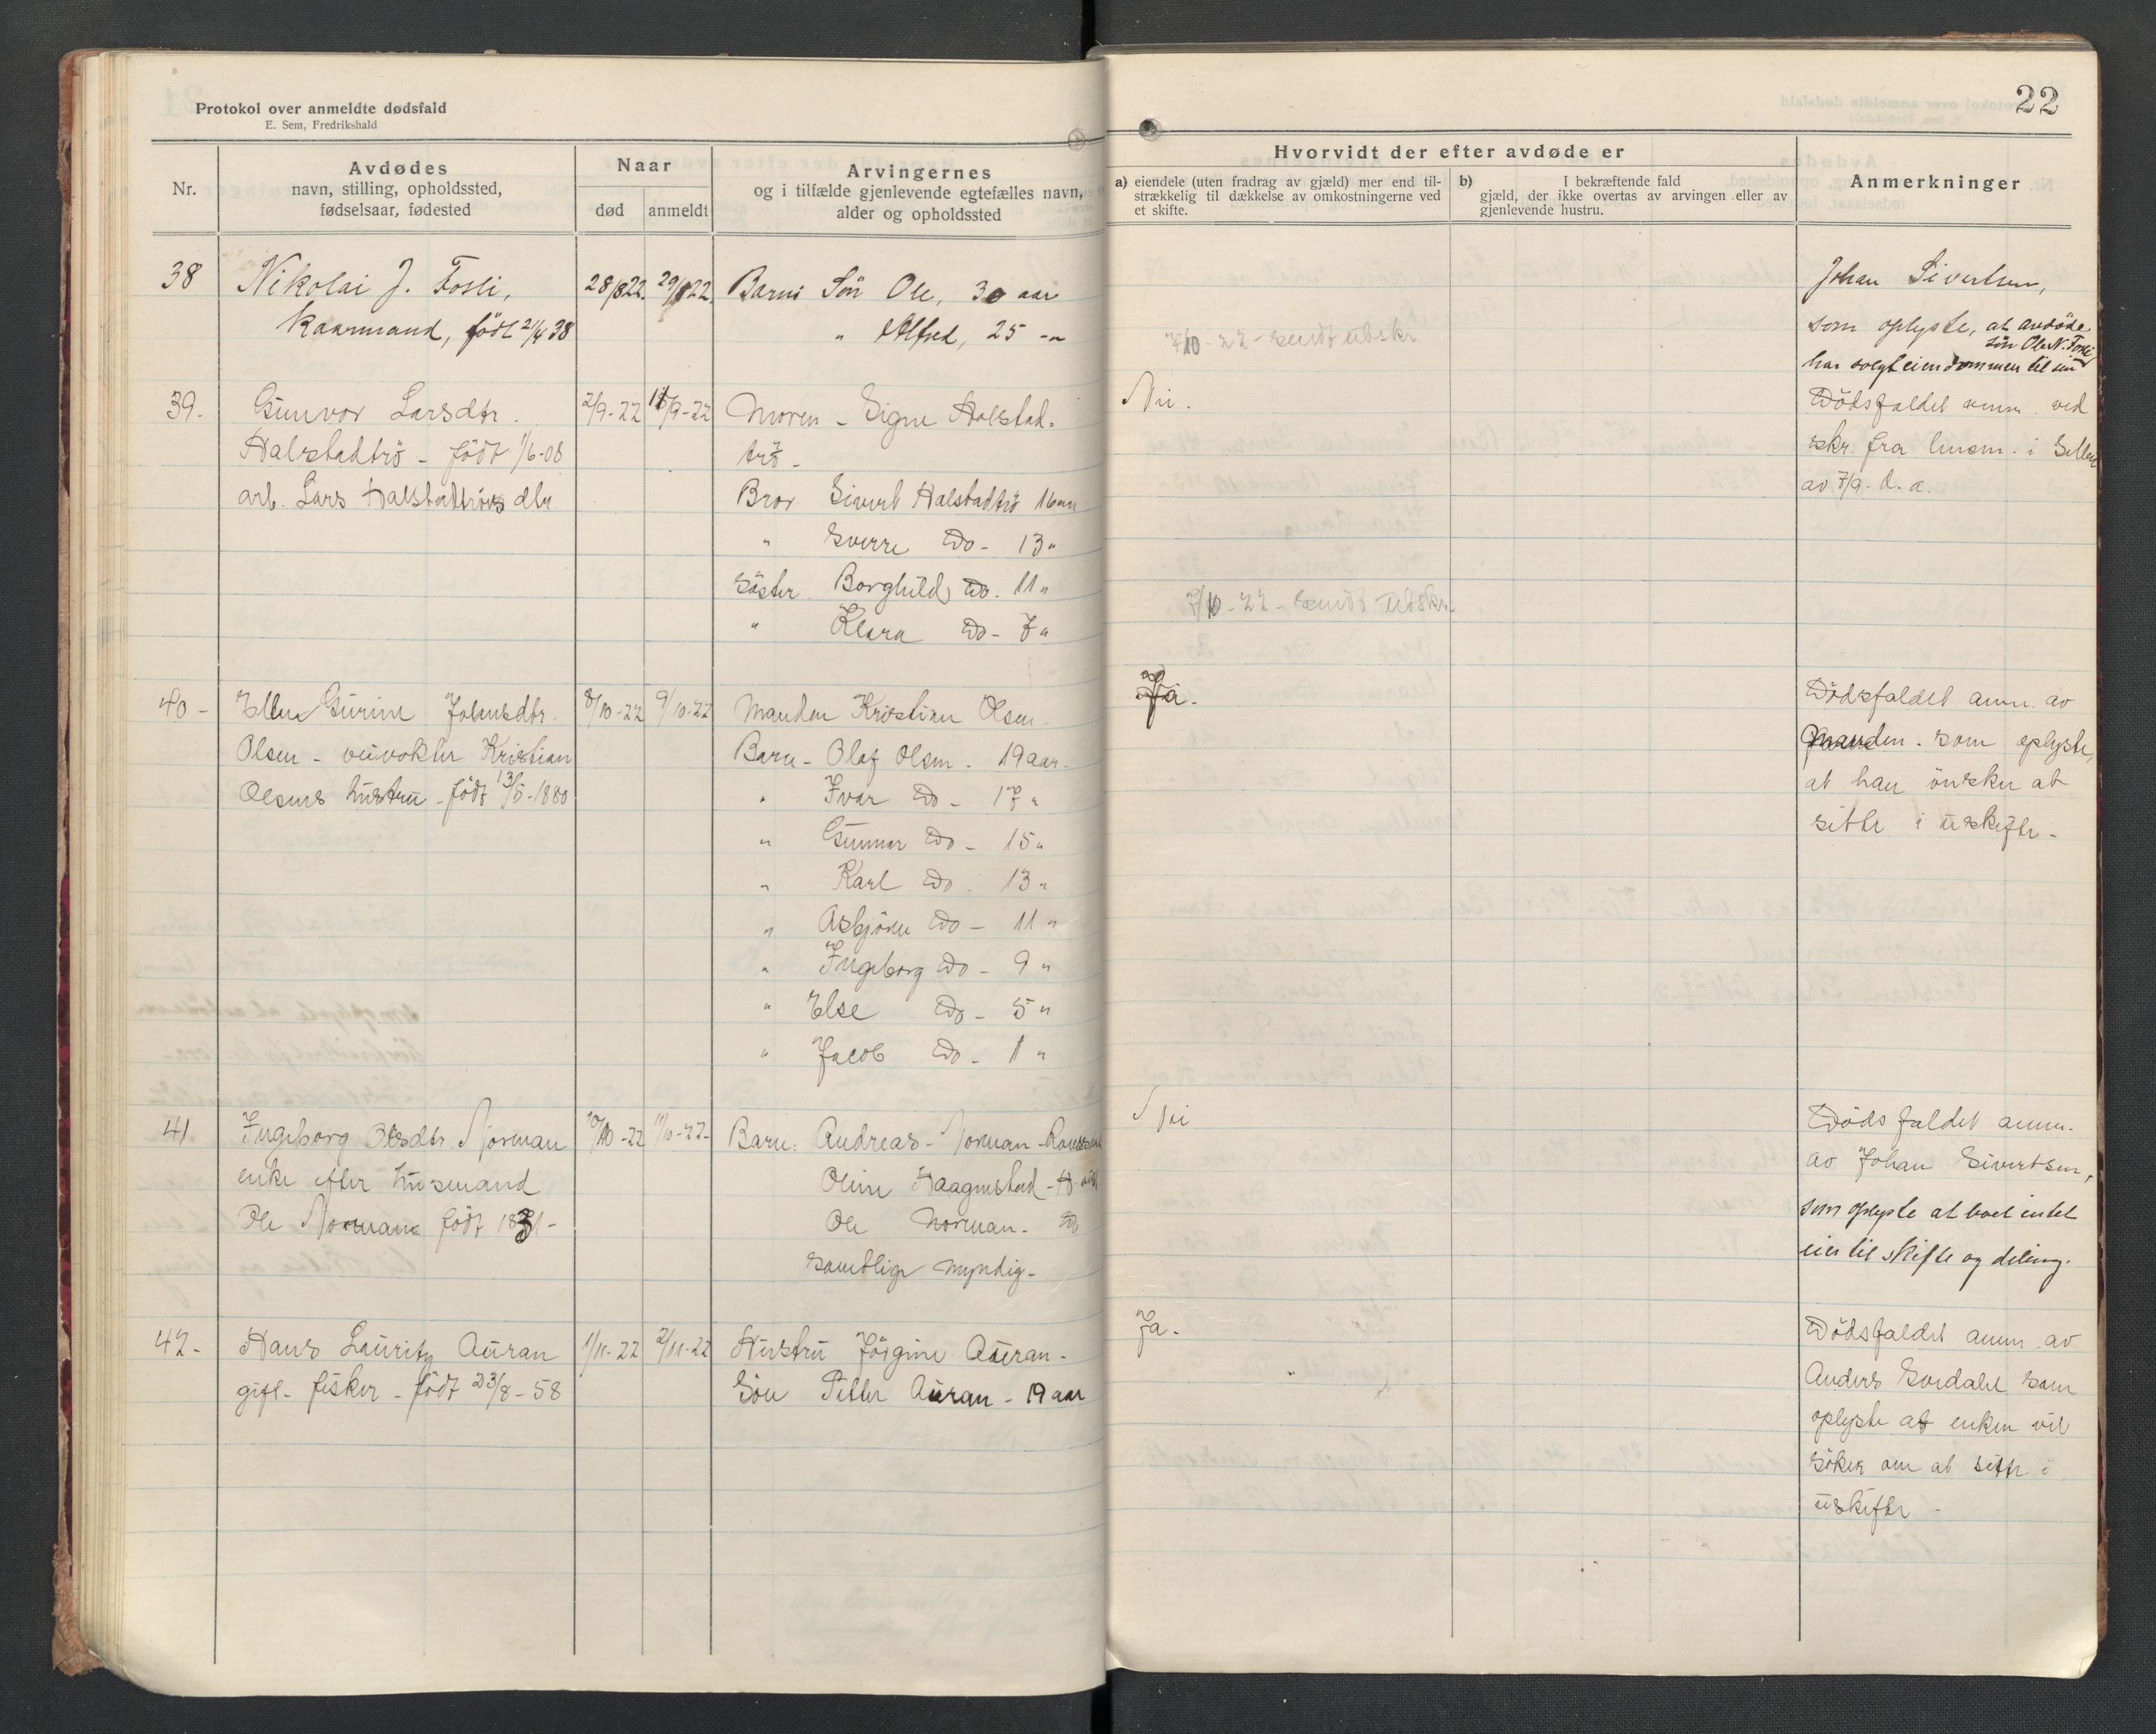 Protokol over anmeldte dødsfald
E. Sem, Fredrikshald
Nr.
Avdødes
navn, stilling, opholdssted,
fødselsaar, fødested
Naar
død
anmeldt
Arvingernes
og i tilfælde gjenlevende egtefælles navn,
alder og opholdssted
38
Nikolai J. Fosli,
Kaarmand, født 21/4 38
28/8 22.
29/8 22
Barn: Sön Ole, 30 aar
" Alfred, 25 -"
39.
Gunvor Larsdtr.
Halstadtrö - född 1/6-08
arb. Lars Halstadtröes dtr.
2/9-22
/9-22
Moren - Signe Halstad-
trö -
Bror Sivert Halstadtrö 16 aar
" Sverre Do - 13 "
Söster. Borghild Do. 11 "
" Klara Do - 7 "
40 -
Ellen Gurine Johnsdtr.
Olsen - veivokter Kristian
Olsens hustru - född 13/5-1880
8/10-22
9/10-22
Manden Kristian Olsen.
Barn - Olaf Olsen. 19 aar -
" Ivar Do - 17 "
" Gunnar Do - 15 "
" Karl Do. 13 "
" Asbjörn Do - 11 "
" Ingeborg Do - 9 "
" Else Do - 5 "
" Jacob Do - 1 "
41
Ingeborg Olsdtr. Norman
enke efter husmand
Ole Norman född 1831 -
10/10-22
11/10-22-
Barn: Andreas Norman -
Oline Haagenstad -
Ole Norman. Do
samtlige myndig -
42 -
Hans Lauritz Auran
gift - fisker - född 23/8-58
1/11-22
2/11-22
Hustru Jörgine Auran -
Sön Petter Auran - 19 aar
22
Hvorvidt der efter avdøde er
a) eiendele (uten fradrag av gjæld) mer end til-
strækkelig til dækkelse av omkostningerne ved
et skifte.
b) I bekræftende fald
gjæld, der ikke overtas av arvingen eller av
gjenlevende hustru.
Anmerkninger
7/10-22 - sendt utskr
Johan Sivertsen,
som oplyste, at avdöde
sön Ole N. Fosli
har solgt eiendommen til sin
Nei.
7/10-22 - sendt utskr.
Dödsfaldet anm. ved
skr. fra lensm. i
av 7/9. d. a.
Ja.
Dödsfaldet anm. av
manden. som oplyste,
at han önsker at
sitte i uskifte -
Nei
Dödsfaldet anm.
av Johan Sivertsen,
som oplyste at boet intet
eier til skifte og deling.
Ja.
Dödsfaldet anm. av
Anders Svedahl som
oplyste at enken vil
söke om at sitte i
uskifte -